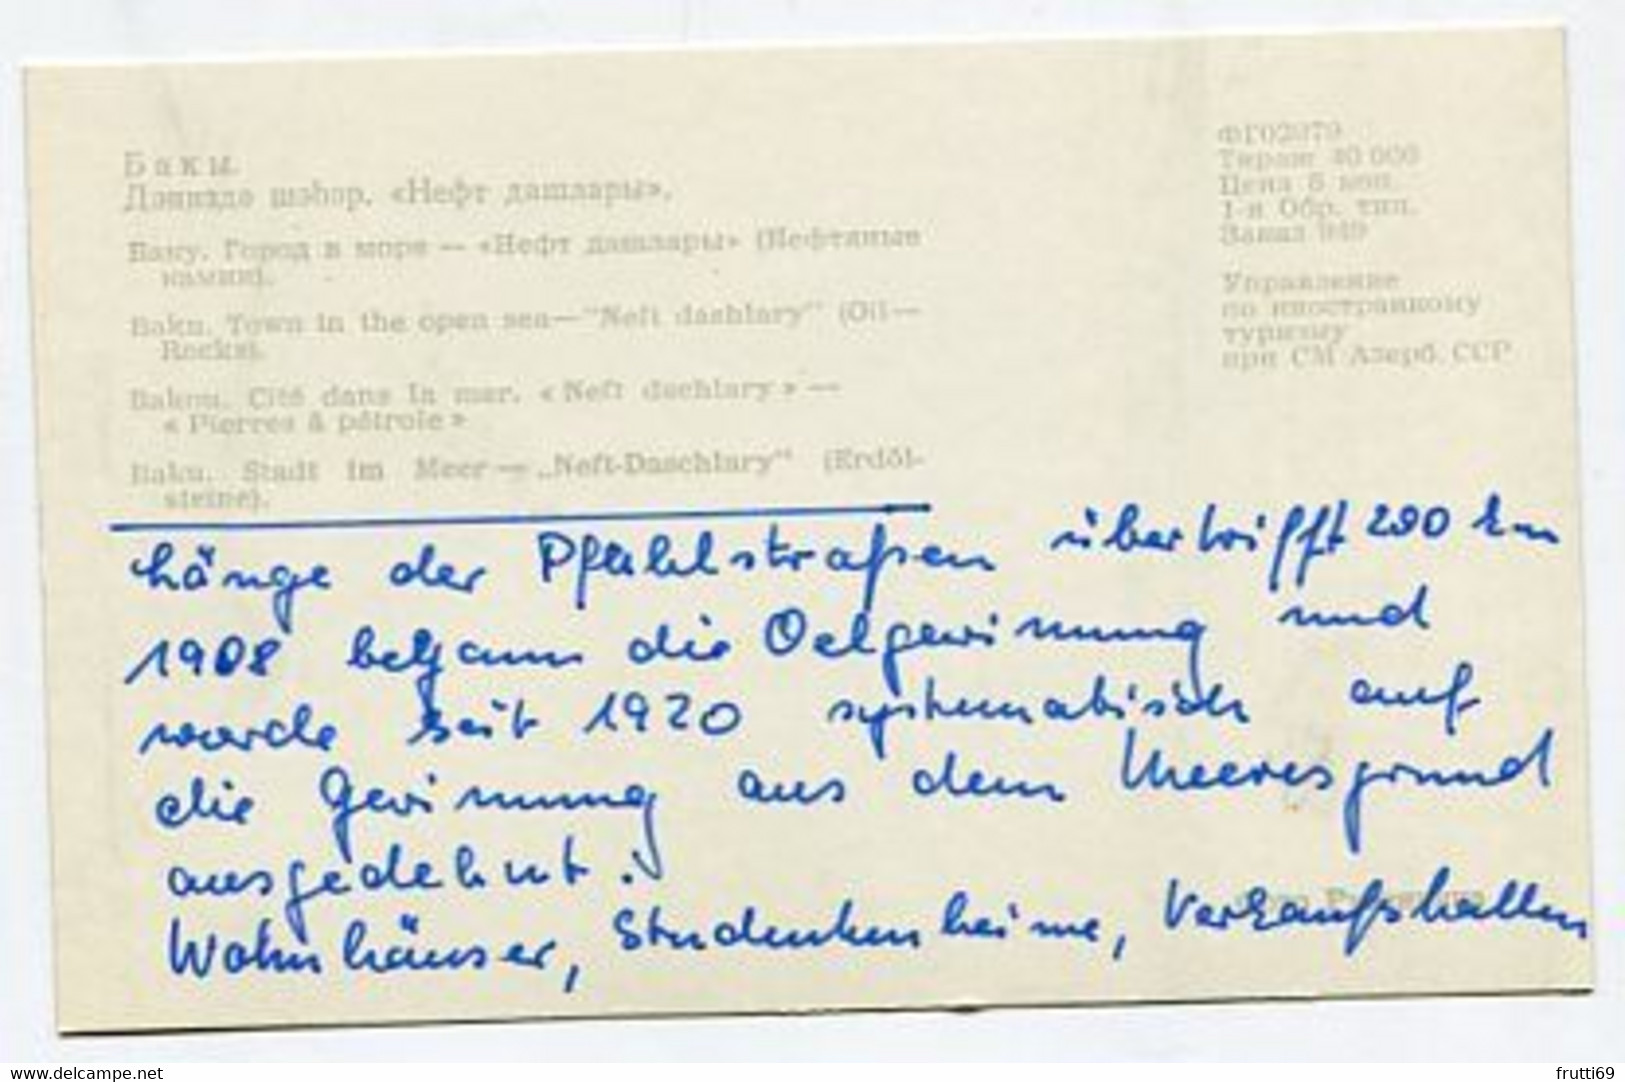 Бакы.
Дәниздә шәһәр. «Нефт дашлары».
Баку. Город в море — «Нефт дашлары» (Нефтяные
камни).
Baku. Town in the open sea—"Neft dashlary" (Oil—
Rocks).
Bakou. Cité dans la mer. « Neft dachlary » —
« Pierres à pétrole »
Baku. Stadt im Meer — „Neft-Daschlary" (Erdöl-
steine).
ФГ02979
Тираж 40 000
Цена 5 коп.
1-я Обр. тип.
Заказ 949
Управление
по иностранному
туризму
при СМ Азерб. ССР
Länge der Pfahlstraßen übertrifft 200 km
1908 begann die Oelgewinnung und
wurde seit 1920 systematisch auf
die Gewinnung aus dem Meeresgrund
ausgedehnt.
Wohnhäuser, Studentenheime, Verkaufshallen
www.delcampe.net
frutti69